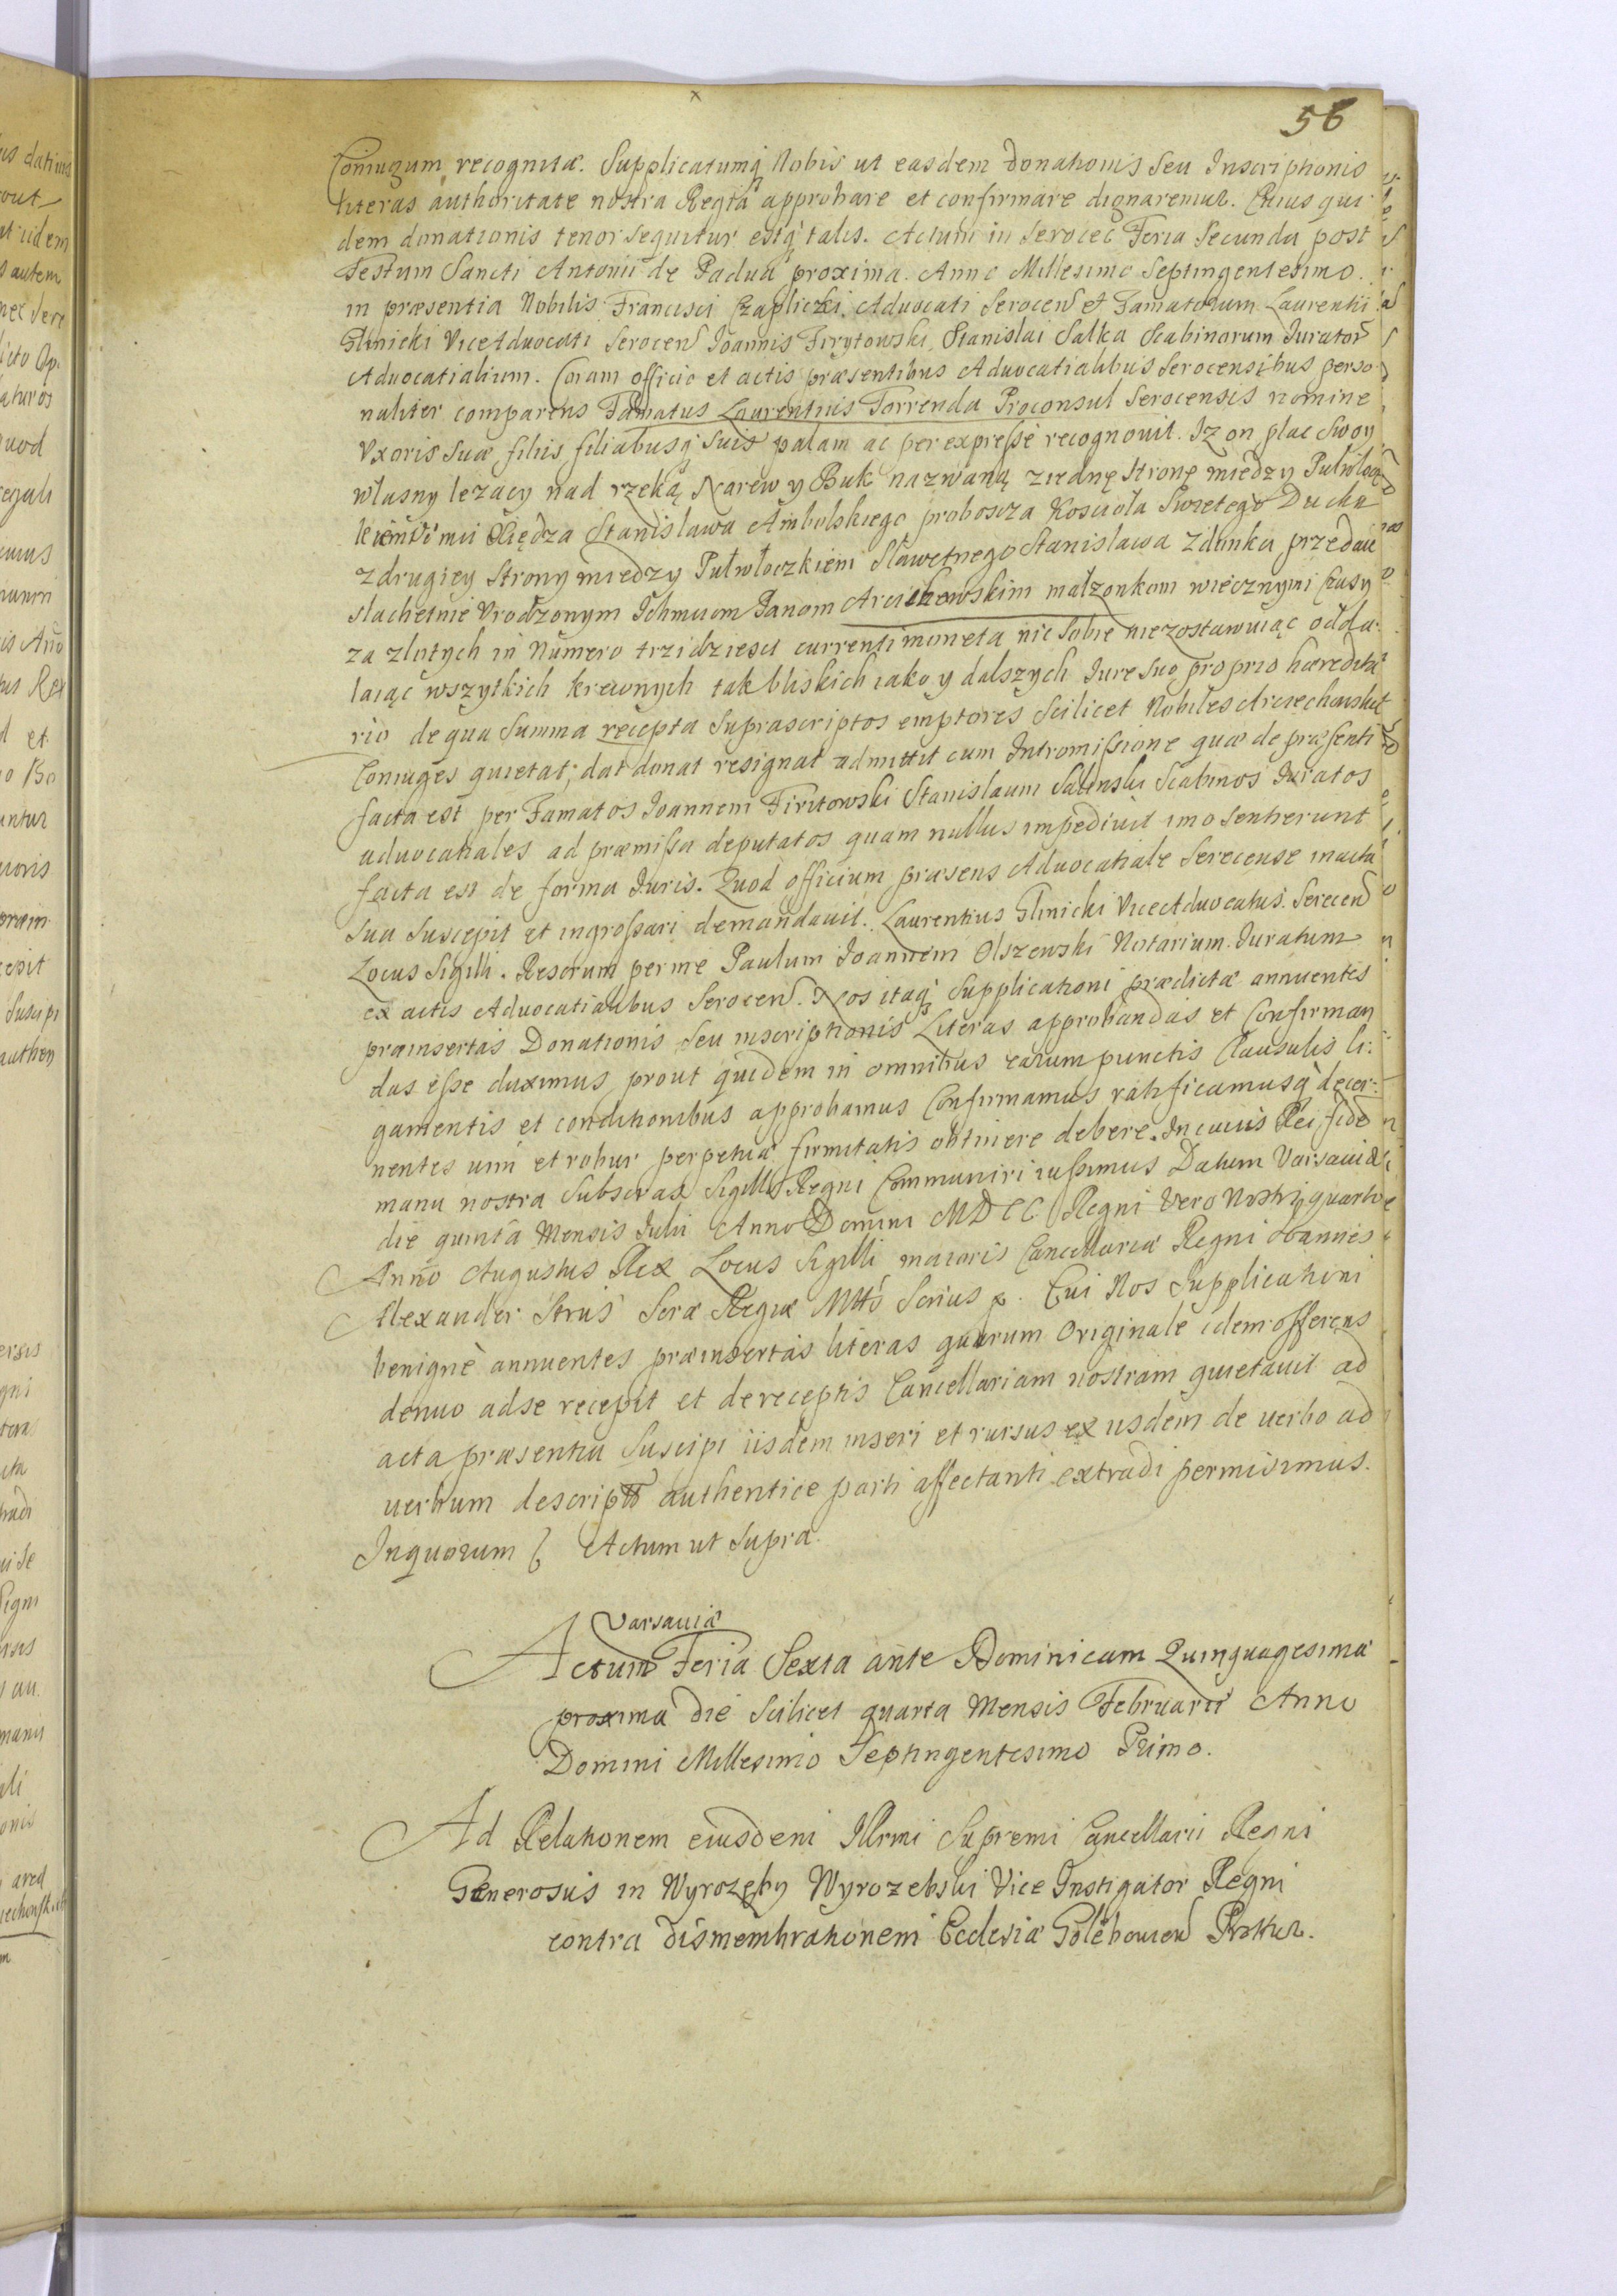 56
Coniugum recognitæ. Supplicatumq̃ Nobis ut easdem donationis seu Inscriptionis
literas authoritate nostra Regia approbare et confirmare dignaremur. Cuius qui
dem donationis tenor sequitur estq̃ talis. Actum in Serocec Feria Secunda post
Festum Sancti Antonii de Padua proxima. Anno Millesimo Septingentesimo.
in præsentia Nobilis Francisci Czapliczki Advocati Serocen̄ et Famatorum Laurentii
Glinicki ViceAdvocati Serocen̄ Joannis Firytowski, Stanislai Salka Scabinorum Jurator̄
Advocatialium. Coram officio et actis præsentibus Advocatialibus Serocensibus perso
naliter comparens Famatus Laurentius Torrenda Proconsul Serocensis nomine
Uxoris suæ filiis filiabusq̃ suis palam ac per expresse recognovit. Iz on plac swoy
własny lezacy nad rzeką Narew y Buk nazwaną ziednę stronę miedzy Pułwłocz
kiem Xiędza Stanisława Ambolskiego proboscza Koscioła Swietego Ducha
zdrugiey strony miedzy Pułwłoczkiem Sławetnego Stanisława zdunka przedau
slachetnie Urodzonym Ichmciom Panom Arcichewskim małzonkom wiecznymi czasy
za zlotych in Numero trzidziesci currenti moneta nic sobie niezostawuiąc odda
laiąc wszytkich krewnych tak bliskich iako y dalszych Jure suo proprio hæredita
rio de qua summa recepta suprascriptos emptores scilicet Nobiles Arciechowskie
Coniuges quietat, dat donat resignat admittit cum Intromissione quæ de præsenti
facta est per Famatos Joannem Firitowski Stanislaum Salinski Scabinos Juratos
advocatiales ad præmissa deputatos quam nullus impedivit imo senserunt
facta est de forma Juris. Quod officium præsens Advocatiale Serocense in acta
sua suscepit et ingrossari demandavit. Laurentius Glinicki ViceAdvocatus Serocen̄
Locus Sigilli. Rescrum per me Paulum Joannem Olszewski Notarium Juratum
ex actis Advocatialibus Serocen̄. Nos itaq̃ supplicationi prædictæ annuentes
præinsertas Donationis seu inscriptionis Literas approbandas et Confirman
das esse duximus prout quidem in omnibus earum punctis Clausulis li:
gamentis et conditionibus approbamus Confirmamus ratificamusq̃ decer:
nentes vim et robur perpetuæ firmitatis obtinere debere. In cuius Rei fidē
manu nostra subscras Sigillo Regni Communiri iussimus Datum Varsaviæ
die quinta Mensis Julii Anno Domini MDCC Regni vero Nostri quarto
Anno Augustus Rex Locus Sigilli maioris Cancellariæ Regni Joannes
Alexander Strus Scræ Regiæ Mttis Scrius p. Cui Nos Supplicationi
benigne annuentes præinsertas literas quarum Originale idem offerens
denuo adse recepit et de receptis Cancellariam nostram quietavit ad
acta præsentia suscipi iisdem inseri et rursus ex iisdem de verbo ad
verbum descriptō authentice parti affectanti extradi permisimus.
In quorum Actum ut supra.
Varsaviæ
Actum Feria Sexta ante Dominicam Quinquagesimæ
proxima die scilicet quarta Mensis Februarii Anno
Domini Millesimo Septingentesimo Primo.
Ad Relationem eiusdem Illrmi Supremi Cancellarii Regni
Generosus in Wyrozęby Wyrozebski Vice Instigator Regni
contra dismembrationem Ecclesiæ Golebouien̄ Prottur.